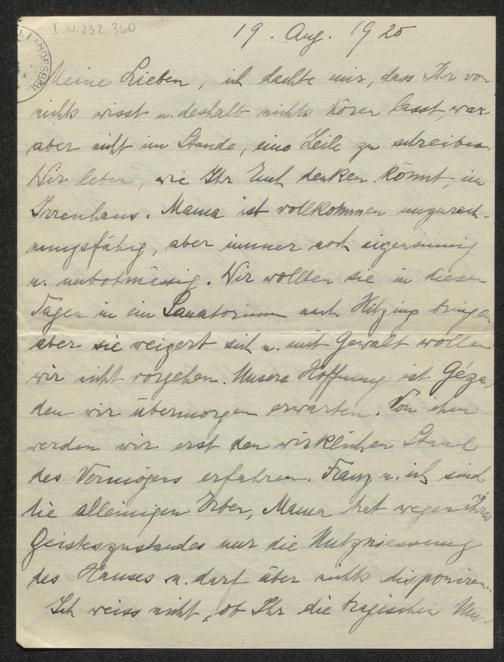 I.N.232.360
LANDESBI
19. Aug. 1920
Meine Lieben, ich dachte mir, dass Ihr von
nichts wisst u. deshalb nichts hören lasst, war
aber nicht im Stande, eine Zeile zu schreiben.
Wir leben, wie Ihr Euch denken könnt, im
Irrenhaus. Mama ist vollkommen unzurech-
nungsfähig, aber immer noch eigensinnig
u. unbotmässig. Wir wollten sie in diesen
Tagen in ein Sanatorium nach Hitzing bringen
aber sie weigert sich u. mit Gewalt wollen
wir nicht vorgehen. Unsere Hoffnung ist Géza,
den wir übermorgen erwarten. Von ihm
werden wir erst den wirklichen Stand
des Vermögens erfahren. Franz u. ich sind
die alleinigen Erber, Mama hat wegen ihres
Geisteszustandes nur die Nutzniessung
des Hauses u. darf über nichts disponieren
Ich weiss nicht, ob Ihr die tragischen